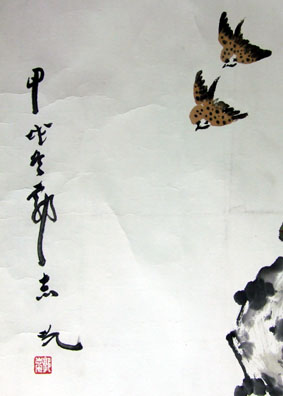 甲戌冬郭志光